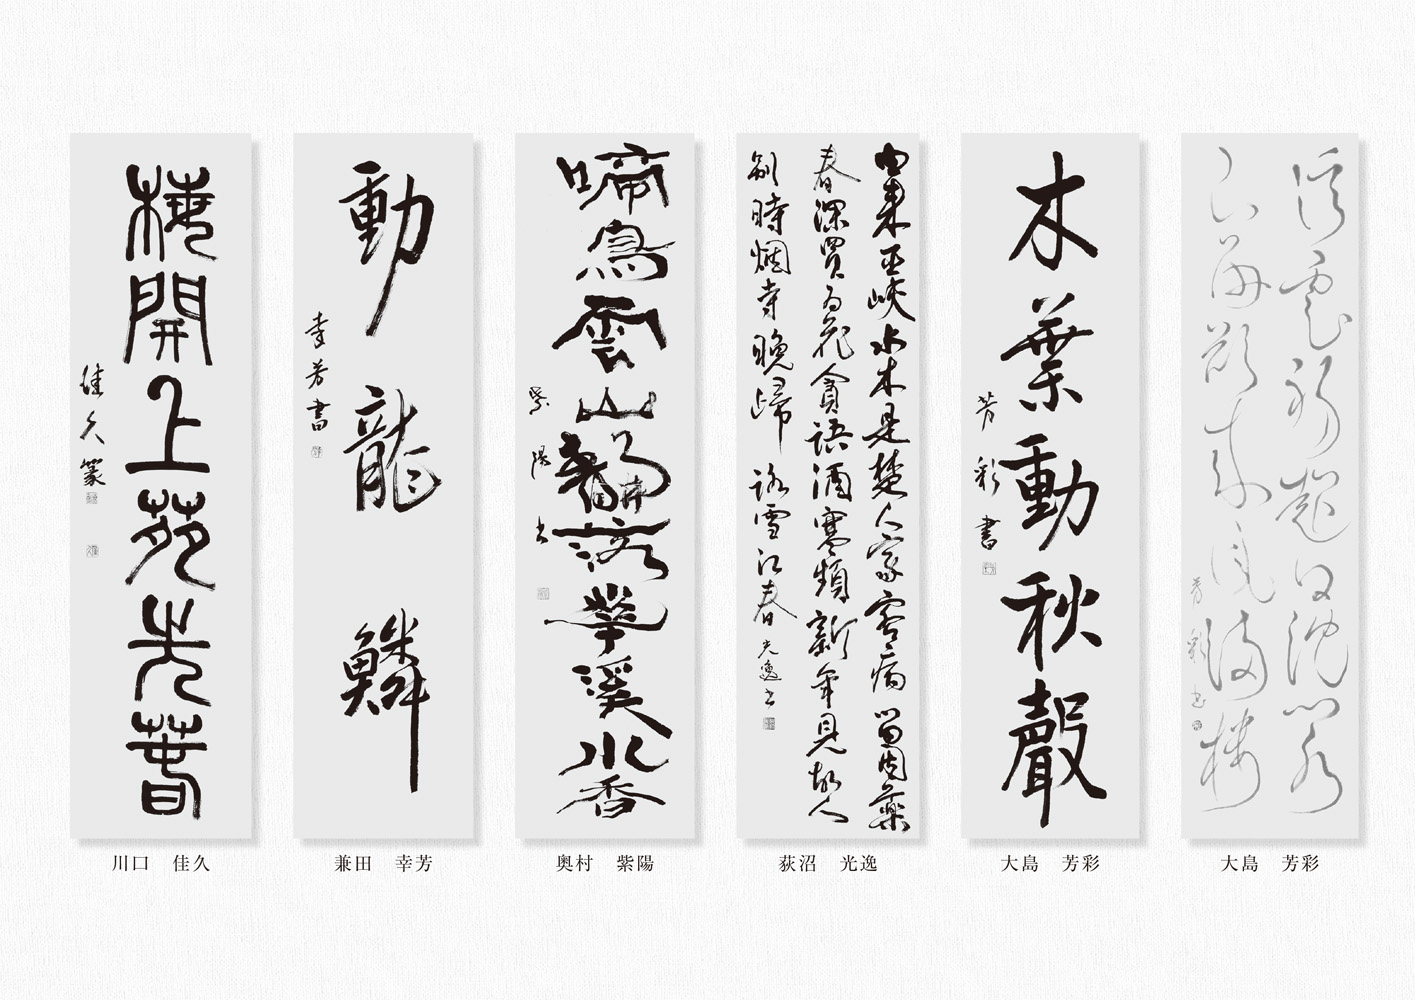 溪雲初起日沈閣
山雨欲来風満楼
芳彩書
大島　芳彩
木葉動秋聲
芳彩書
大島　芳彩
由来巫峽水本是楚人家客病留因藥
春深買為花貪語酒寒頻新年見故人
別時烟寺晩歸詠雪江春 光逸書
荻沼　光逸
啼鳥雲山静落華溪水香
紫陽書
奥村　紫陽
動龍鱗
幸芳書
兼田　幸芳
梅開上苑先春
佳久篆
川口　佳久